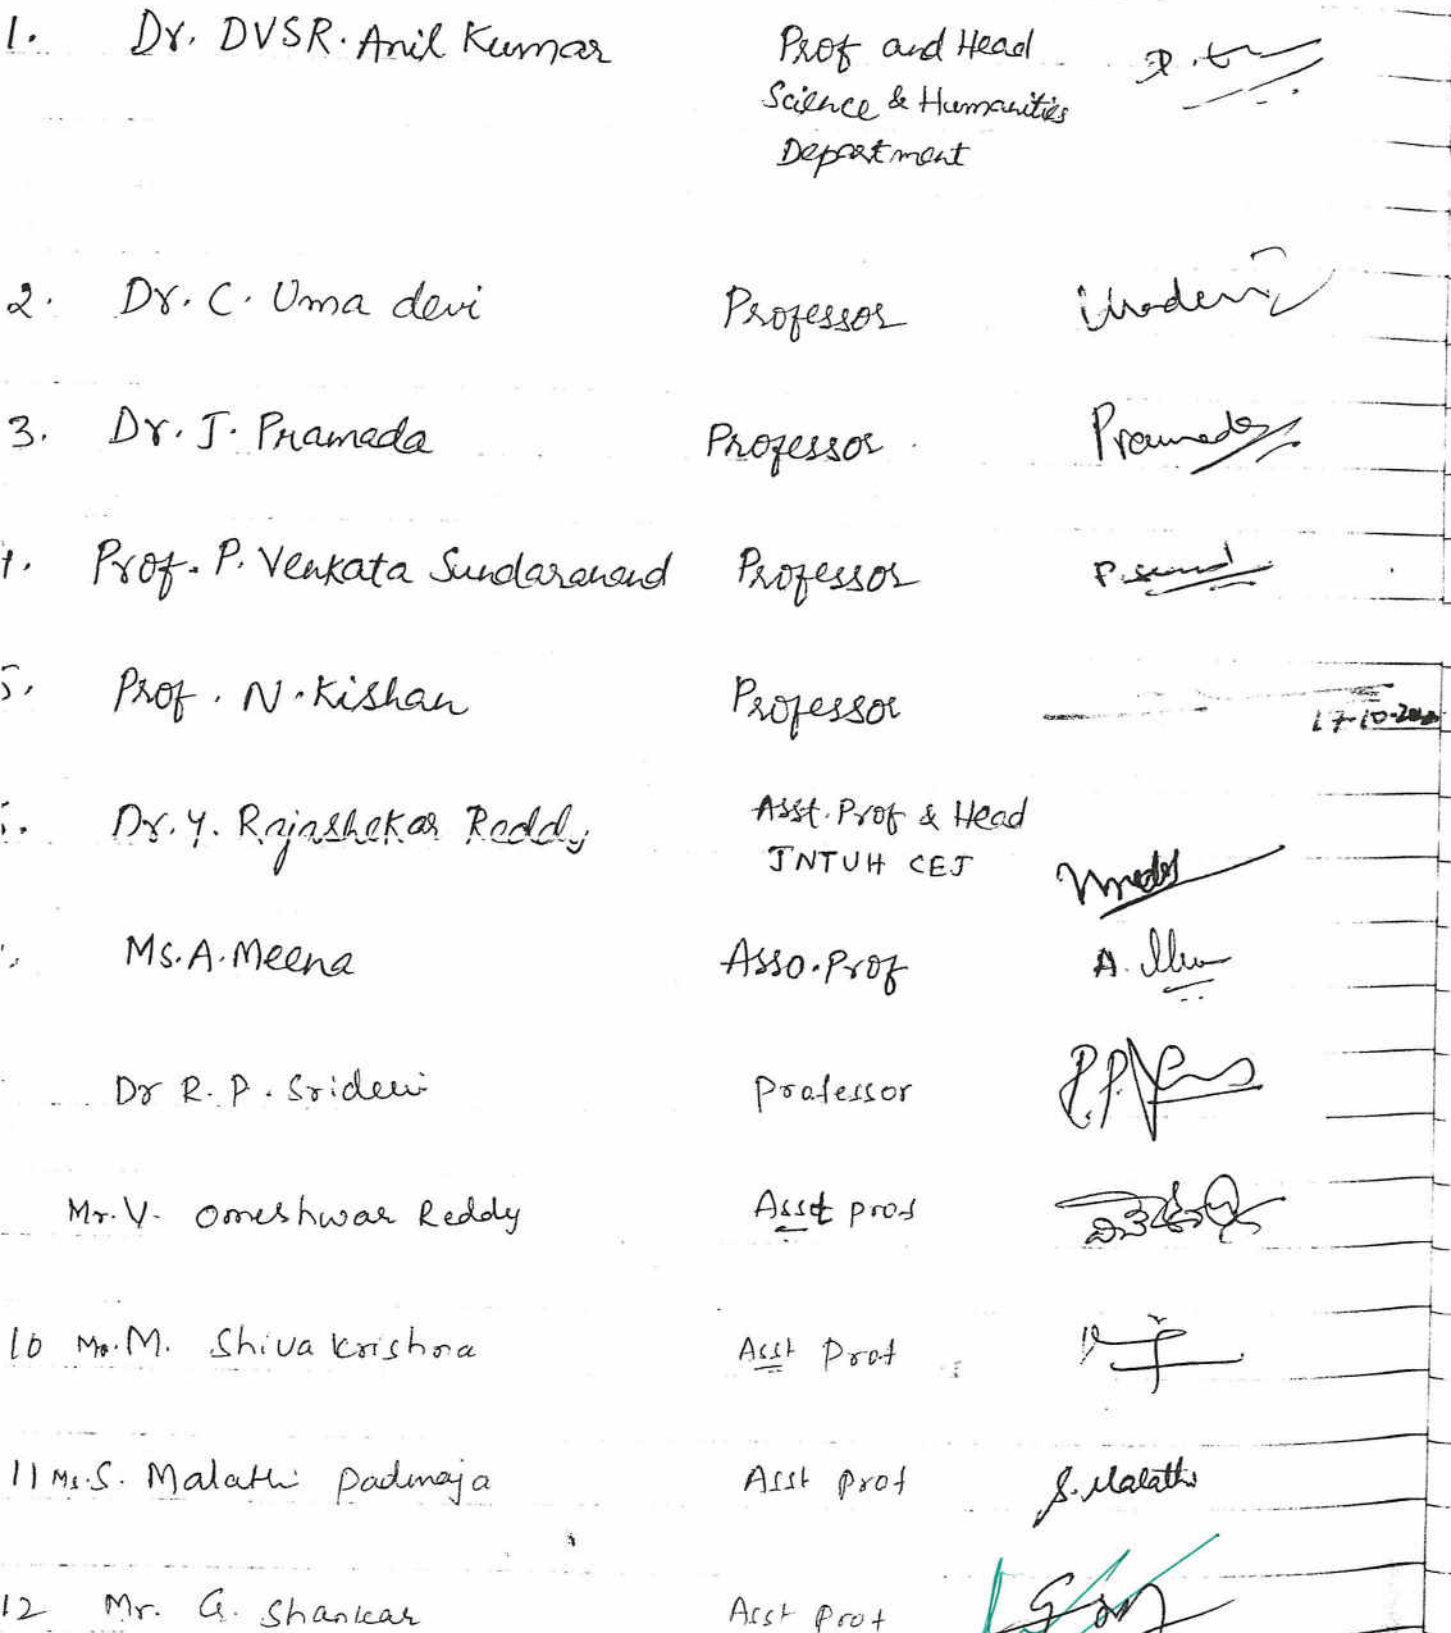 1. Dr. DVSR. Anil Kumar Prof and Head
Science & Humanities
Department
2. Dr. C. Uma devi Professor Umadevi
3. Dr. J. Pramada Professor Pramada
Prof. P. Venkata Sundaranand Professor P.
Prof. N. Kishan Professor
17-10-
Dr. Y. Rajashekar Reddy Asst. Prof & Head
JNTUH CEJ
Ms. A. Meena Asso. Prof A.
Dr R. P. Sridevi Professor
Mr. V. Omeshwar Reddy Asst prof
10 Mr. M. Shiva krishna Asst Prof
11 Ms. S. Malathi padmaja Asst prof S. Malathi
12 Mr. G. Shankar Asst prof